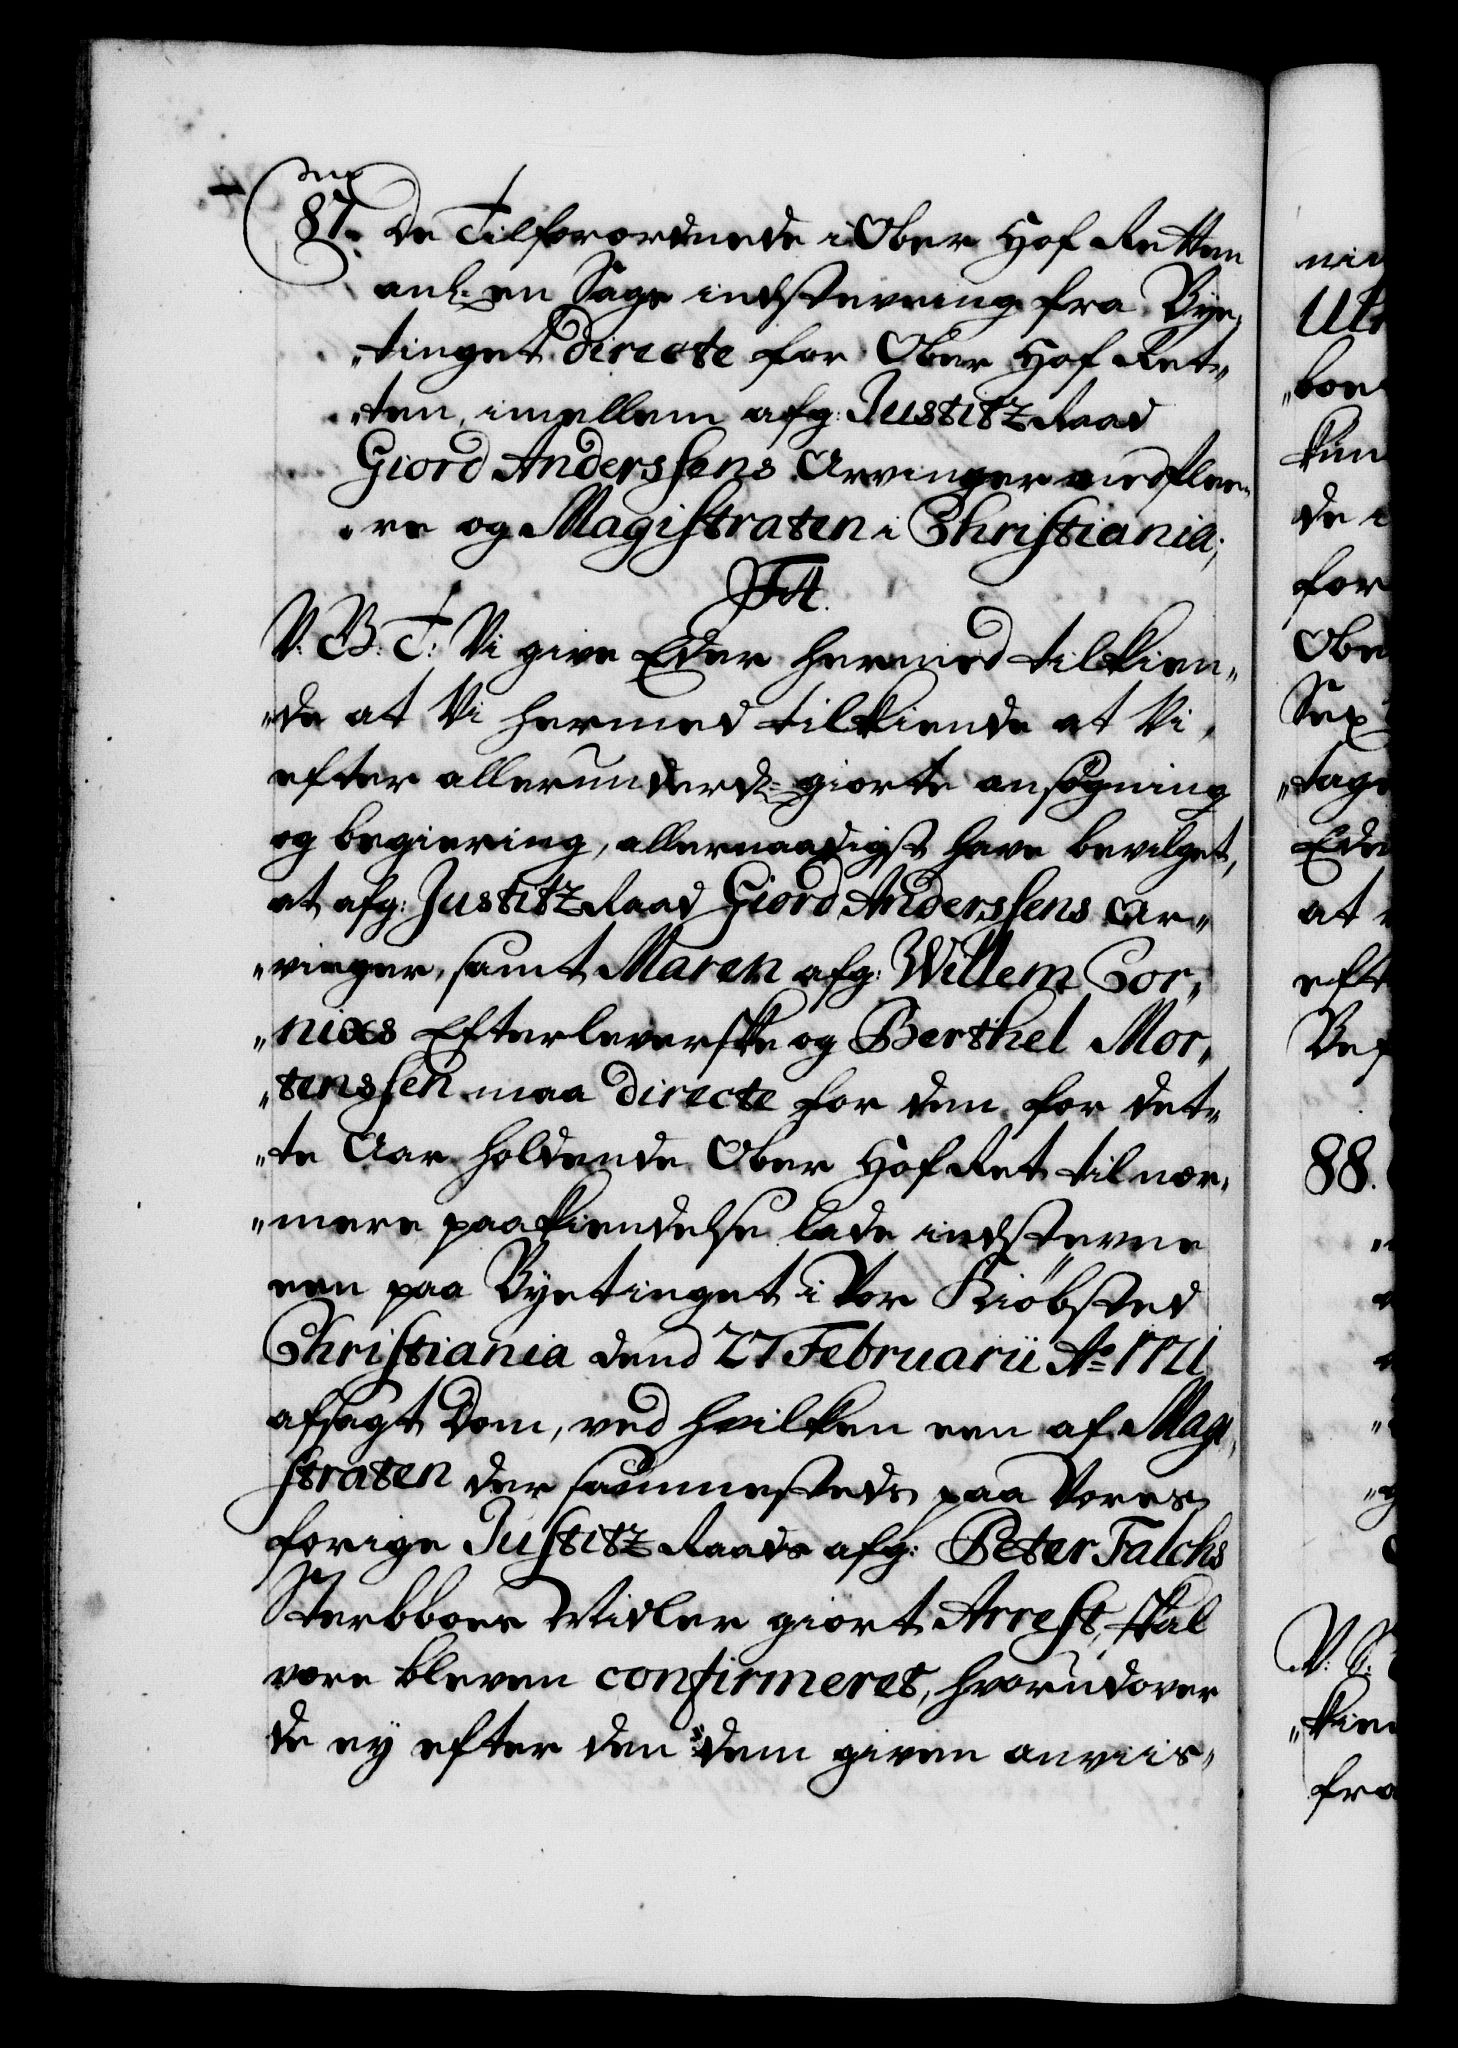 87. De Tilforordnede i Ober Hof Retten
anl: en Sags indstevning fra Bye„
„tinget directe for Ober Hof Ret„
„ten, imellem afg: Justitz Raad
Giord Anderssens Arvinger med flee„
„re og Magistraten i Christiania;
F 4.
V. G. T: Vi give Eder hermed tilkien„
„de at Vi hermed tilkiende at Vi,
efter allerunderd: giorte ansøgning
og begiering, allernaadigst have bevilget,
at afg: Justitz Raad Giord Anderssens Ar„
„vinger, samt Maren afg: Willem Cor„
„nixs Efterleverske og Berthel Mor„
„tenssen maa directe for den for det„
„te Aar holdende Ober Hof Ret til nær„
„mere paakiendelse lade indstevne
een paa Byetinget i Vor Kiöbsted
Christiania dend 27 Februarii Ao 1721
afsagt Dom, ved hvilken een af Magi„
straten der sammesteds paa Vores
forige Justitz Raads afg: Peter Falchs
Sterbboes Midler giort Arrest, skal
være bleven confirmeret, hvorudover
de ey efter den dem given anviis„
nin
Ulr
„boe
kun
de i
for
Obe
Sex
„tage
Ede
at
eft
Bef
88.
V. G.
„kien
fra